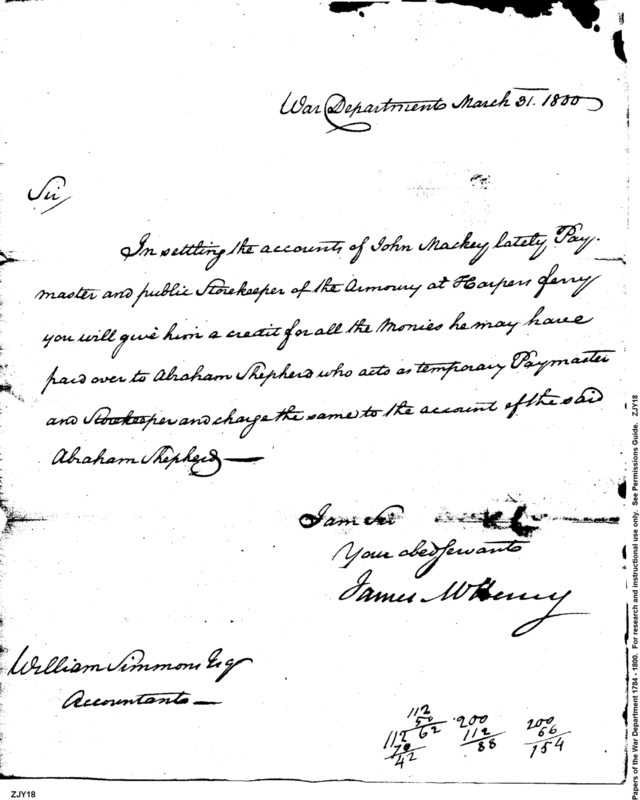 War Department March 31. 1800
Sir
In settling the accounts of John Mackey lately Pay-
master and public Storekeeper of the Armoury at Harpers ferry
you will give him a credit for all the Monies he may have
paid over to Abraham Shepherd who acts as temporary Paymaster
and Storekeeper and charge the same to the account of the said
Abraham Shepherd —
I am Sir
Your obed Servant
James McHenry
William Simmons Esqr
Accountant —
112
50
62
112
70
42
200
112
88
200
154
Papers of the War Department 1784 - 1800. For research and instructional use only. See Permissions Guide. ZJY18
ZJY18